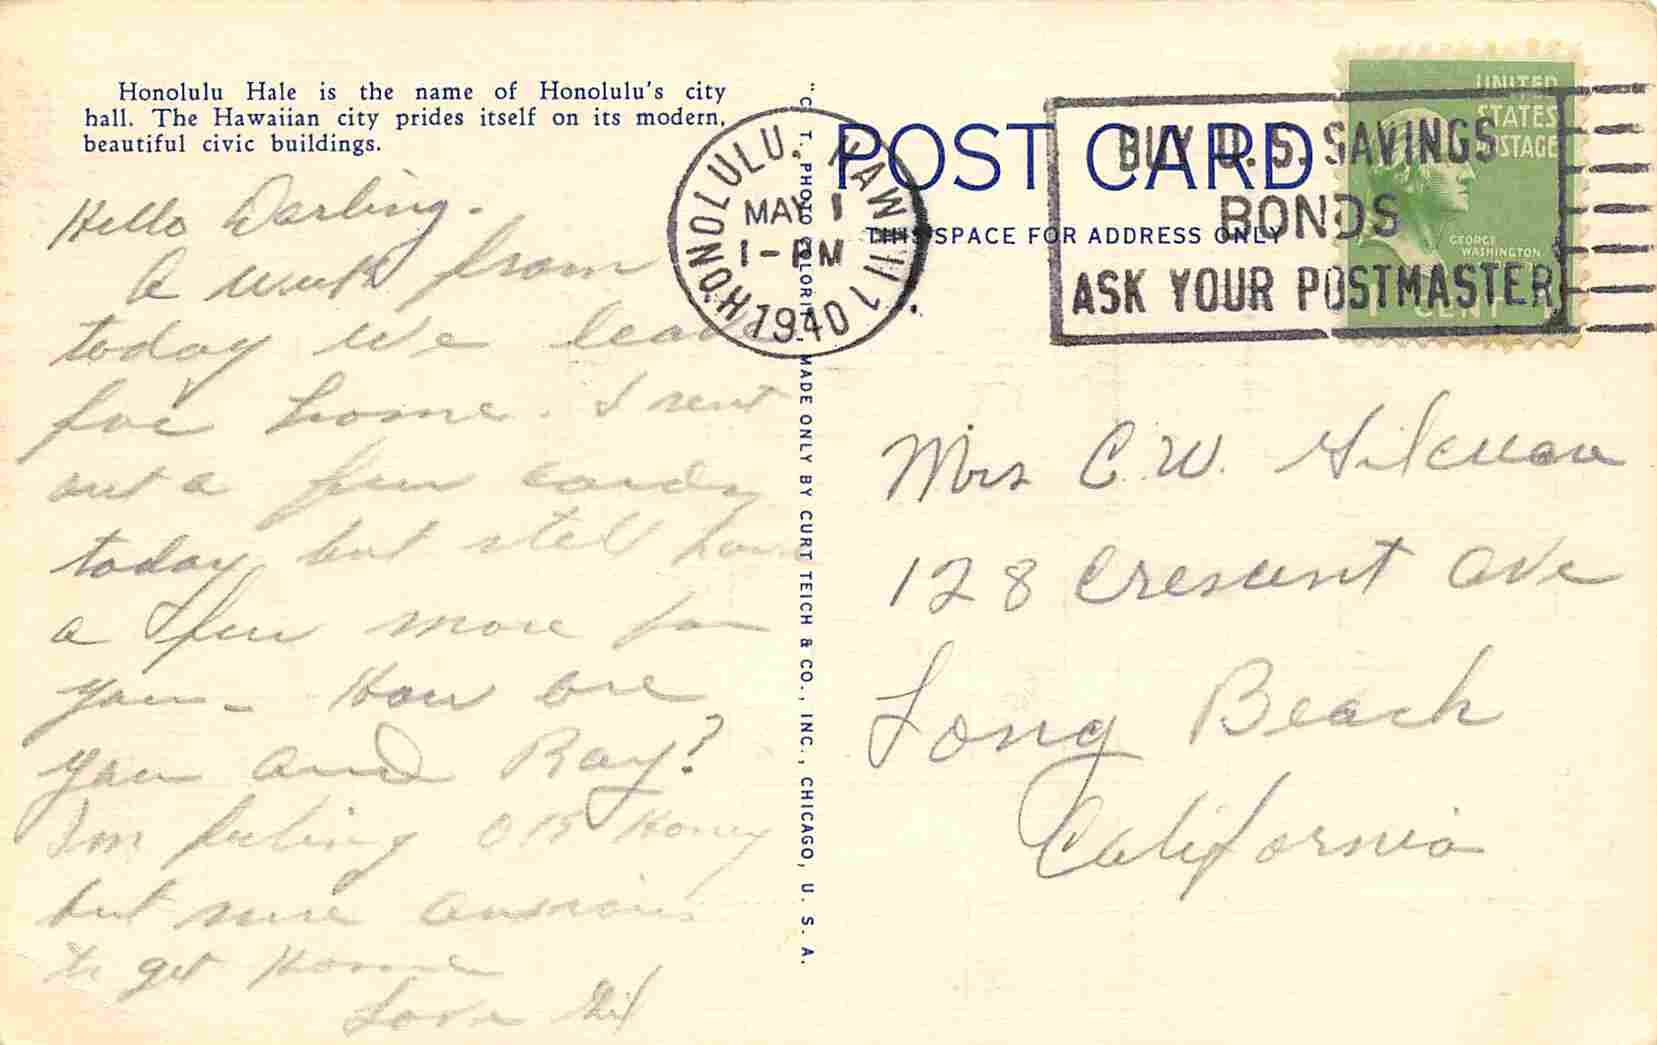 Honolulu Hale is the name of Honolulu's city
hall. The Hawaiian city prides itself on its modern,
beautiful civic buildings.
Hello Darling.
A week from
today we leave
for home. I sent
out a few cards
today but still have
a few more for
you - How are
you and Ray?
I'm feeling OK Honey
but sure anxious
to get Home
Love Gil
"C. T. PHOTO COLORIT" MADE ONLY BY CURT TEICH & CO., INC., CHICAGO, U. S. A.
POST CARD
THIS SPACE FOR ADDRESS ONLY
HONOLULU, HAWAII 1
MAY 1
1-PM
1940
BUY U.S. SAVINGS
BONDS
ASK YOUR POSTMASTER
UNITED
STATES
POSTAGE
GEORGE
WASHINGTON
1 CENT
Mrs C. W. Gilman
128 Crescent Ave
Long Beach
California